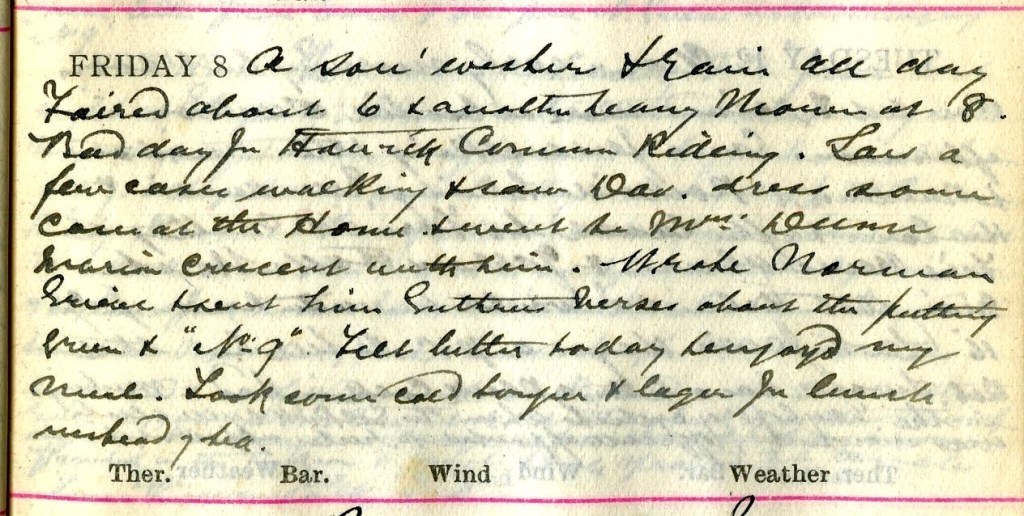 FRIDAY 8 A sou' wester & rain all day
Faired about 6 & another heavy shower at 8.
Bad day for Hawick Common Riding. Saw a
few cases walking & saw Dav. dress some
cases at the Home & went to Mrs. Dunn
Marion Crescent with him. Wrote Norman
Grieve & sent him Guthrie's verses about the putting
Green & "No. 9". Felt better today & enjoyed my
meals. Took some cold tongue & lager for lunch
instead of tea.
Ther. Bar. Wind Weather